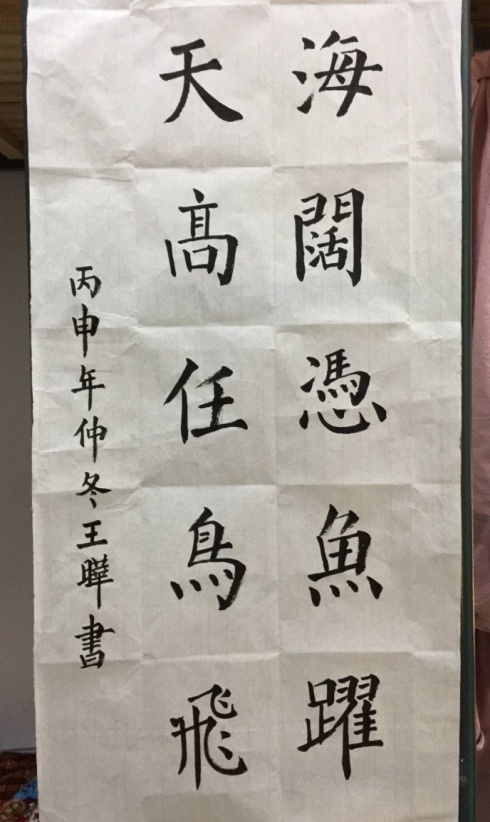 海闊憑魚躍
天髙任鳥飛
丙申年仲冬王曄書